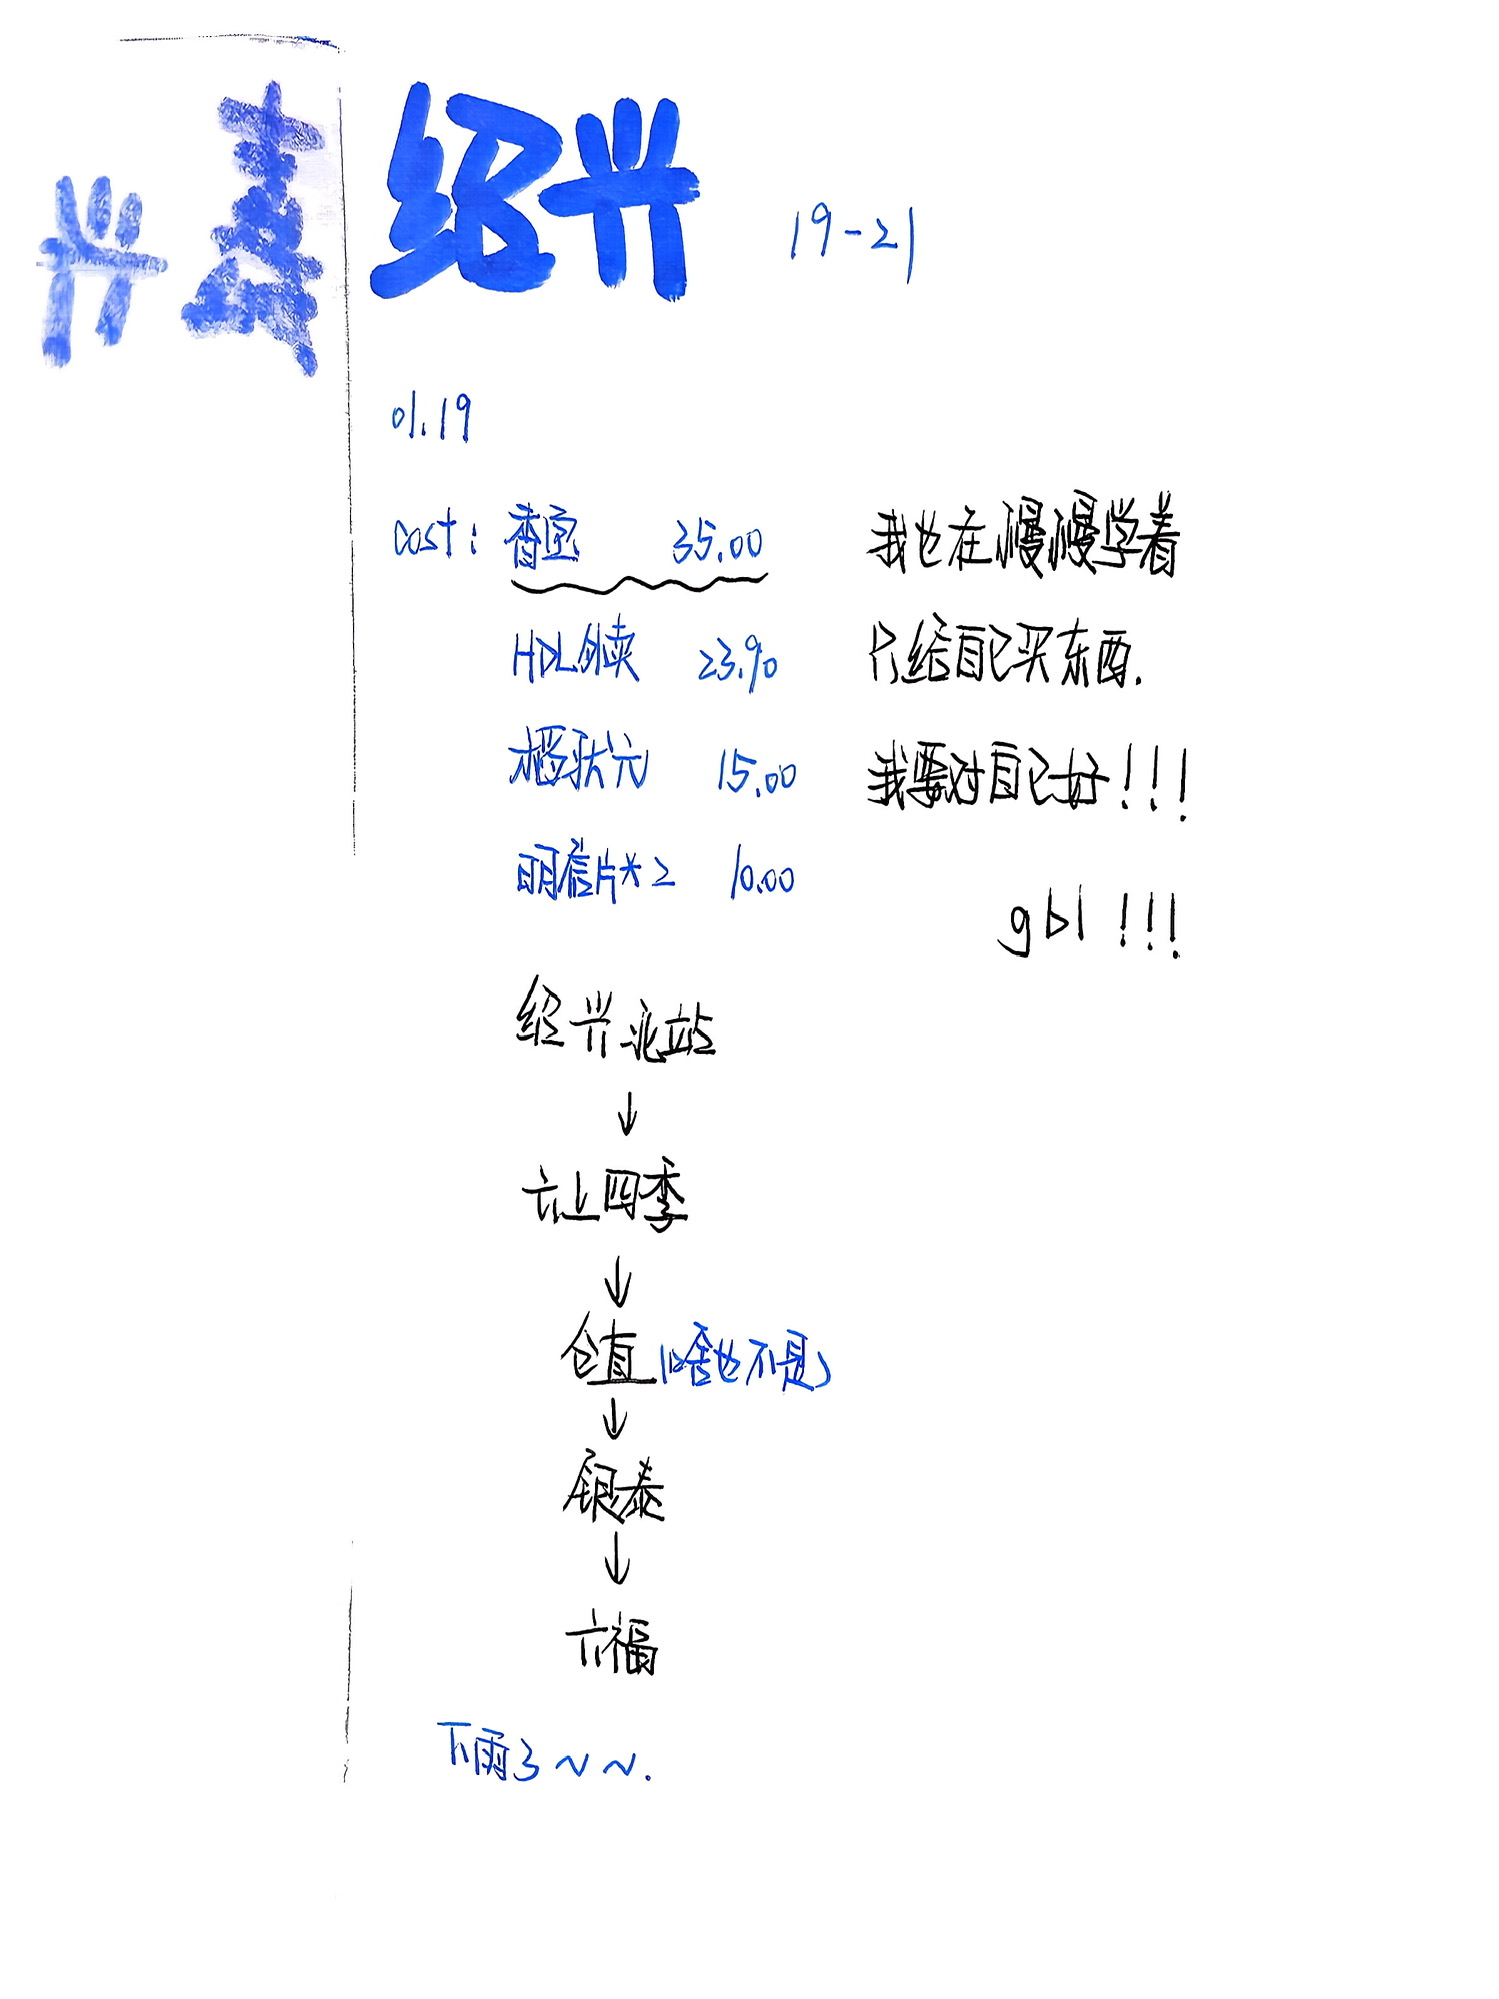 绍兴 19-21
01.19
cost: 香宝 35.00
我也在慢慢学着
HDL外卖 23.90
只给自己买东西.
稻状元 15.00
我要对自己好!!!
明信片*2 10.00
gbl !!!
绍兴北站
↓
六上四季
↓
仓直(啥也不是)
↓
银泰
↓
六福
下雨了~~.